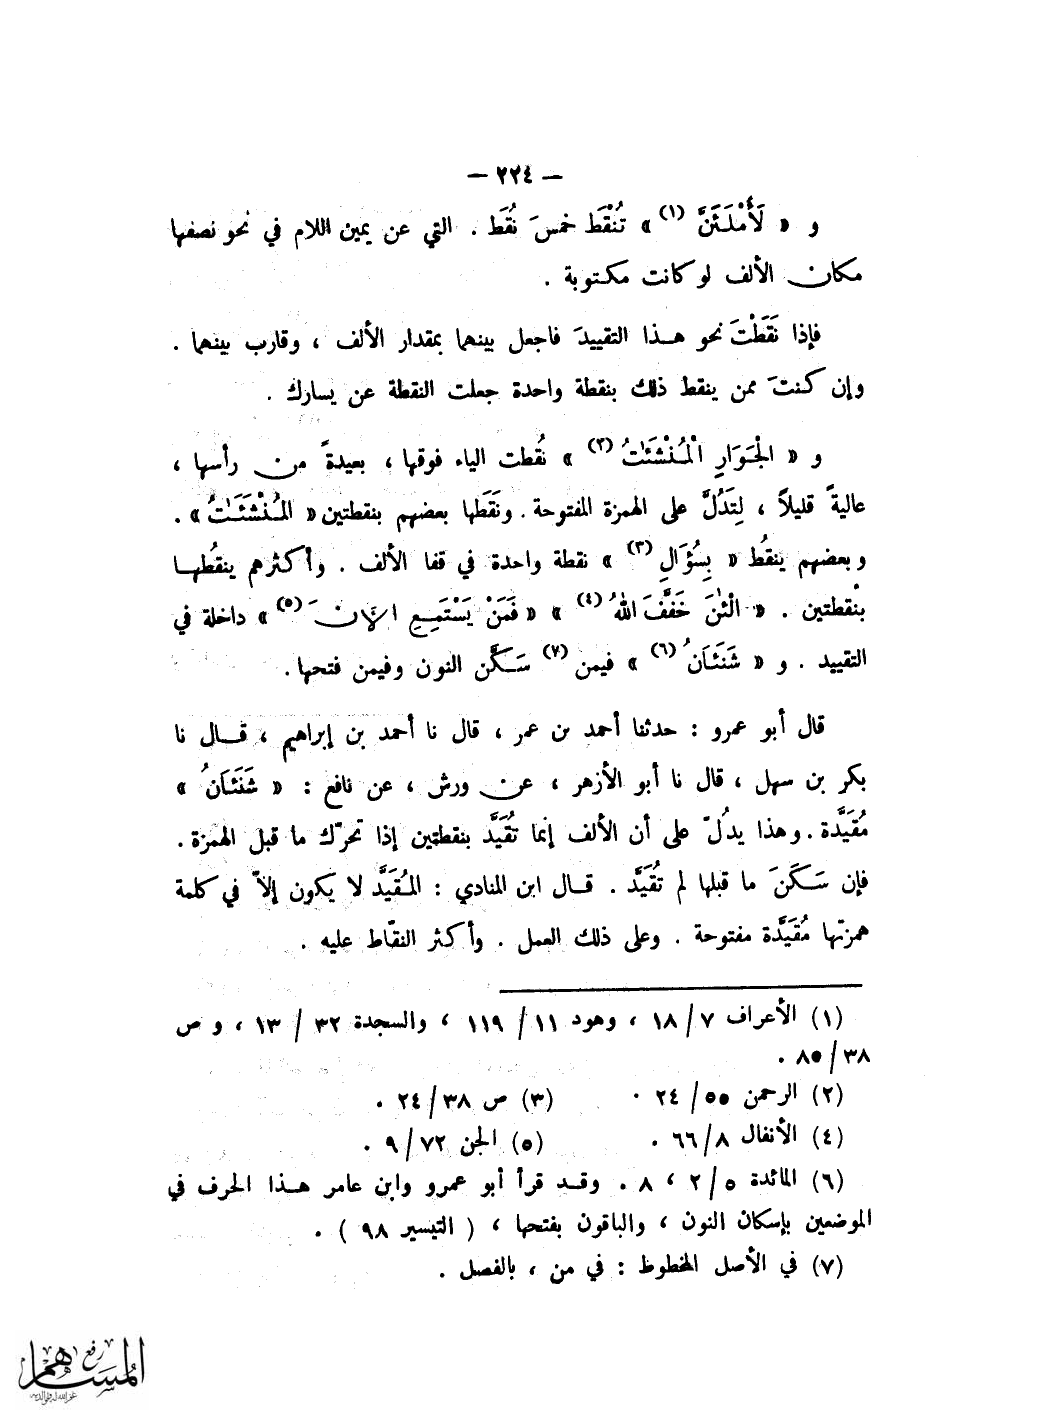 — ٢٢٤ —
و « لَأَمْلَـَٔنَّ (١) » تُنْقَط خمسَ نُقَط . التي عن يمين اللام في نحو نصفها
مكان الألف لو كانت مكتوبة .
فإذا نَقَطْتَ نحو هـذا التقييدَ فاجعل بينهما بمقدار الألف ، وقارب بينهما .
وإن كـنتَ ممن ينقط ذلك بنقطة واحدة جعلت النقطة عن يسارك .
و « الْجَوَارِ الْمُنْشَئَٰتُ (٢) » نُقطت الياء فوقها ، بعيدةً من رأسها ،
عاليةً قليلاً ، لِتَدُلَّ على الهمزة المفتوحة . ونَقَطها بعضهم بنقطتين « الْمُنْشَئَٰتُ » .
وبعضهم ينقُط « بِسُؤَالِ (٣) » نقطة واحدة في قفا الألف . وأكثرهم ينقُطهـا
بنْقطتين . « الْئَٰنَ خَفَّفَ اللهُ (٤) » « فَمَنْ يَسْتَمِـعِ الآنَ (٥) » داخلة في
التقييد . و « شَنَئَانُ (٦) » فيمن (٧) سَـكَّن النون وفيمن فتحها .
قال أبو عمرو : حدثنا أحمد بن عمر ، قال نا أحمد بن إبراهيم ، قـال نا
بكر بن سهل ، قال نا أبو الأزهر ، عن ورش ، عن نافع : « شَنَئَانُ »
مُقَيَّدة . وهذا يدُلّ على أن الألف إنما تُقَيَّد بنقطتين إذا تحرّك ما قبل الهمزة .
فإن سَـكَنَ ما قبلها لم تُقَيَّد . قـال ابن المنادي : المُقَيَّد لا يكون إلاّ في كلمة
همزتها مُقَيَّدة مفتوحة . وعلى ذلك العمل . وأكثر النقّاط عليه .
(١) الأعراف ٧/١٨ ، وهود ١١/١١٩ ، والسجدة ٣٢/١٣ ، و ص
٣٨/٨٥ .
(٢) الرحمن ٥٥/٢٤ . (٣) ص ٣٨/٢٤ .
(٤) الأنفال ٨/٦٦ . (٥) الجن ٧٢/٩ .
(٦) المائدة ٥/٢ ، ٨ . وقـد قرأ أبو عمرو وابن عامر هـذا الحرف في
الموضعين بإسكان النون ، والباقون بفتحها ، ( التيسير ٩٨ ) .
(٧) في الأصل المخطوظ : في من ، بالفصل .
رفع
المساهم